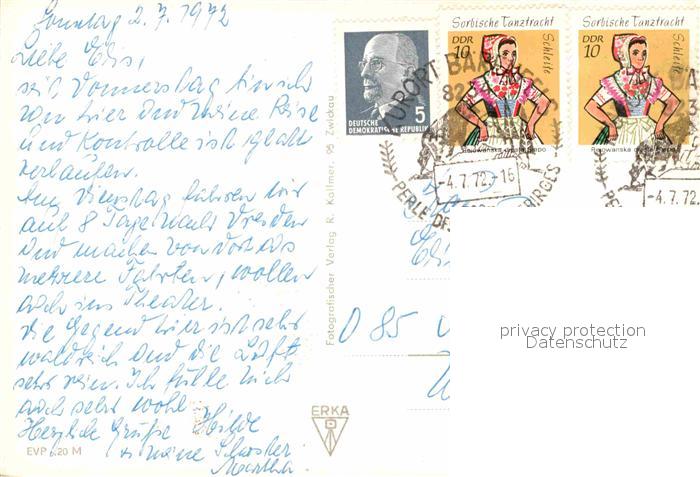 Sonntag 2.7.1972
Liebe Elis,
seit Donnerstag bin ich
von hier und meine Reise
und Kontrolle ist glatt
verlaufen.
Am Dienstag fuhren wir
auf 8 Tage nach Dresden
und machen von dort aus
mehrere Fahrten, wollen
auch ins Theater.
Die Gegend hier ist sehr
waldreich und die Luft
sehr rein. Ich fühle mich
auch sehr wohl.
Herzliche Grüße Hilde
meine Schwester
Martha.
EVP 0.20 M
Fotografischer Verlag K. Kallmer, 95 Zwickau
ERKA
5
DEUTSCHE
DEMOKRATISCHE REPUBLIK
Sorbische Tanztracht
DDR
10
Schleife
Sorbische Tanztracht
DDR
10
Schleife
KURORT BÄR
82
-4.7.72.-16
PERLE DES
BIRGES
-4.7.72.
D 85
privacy protection
Datenschutz